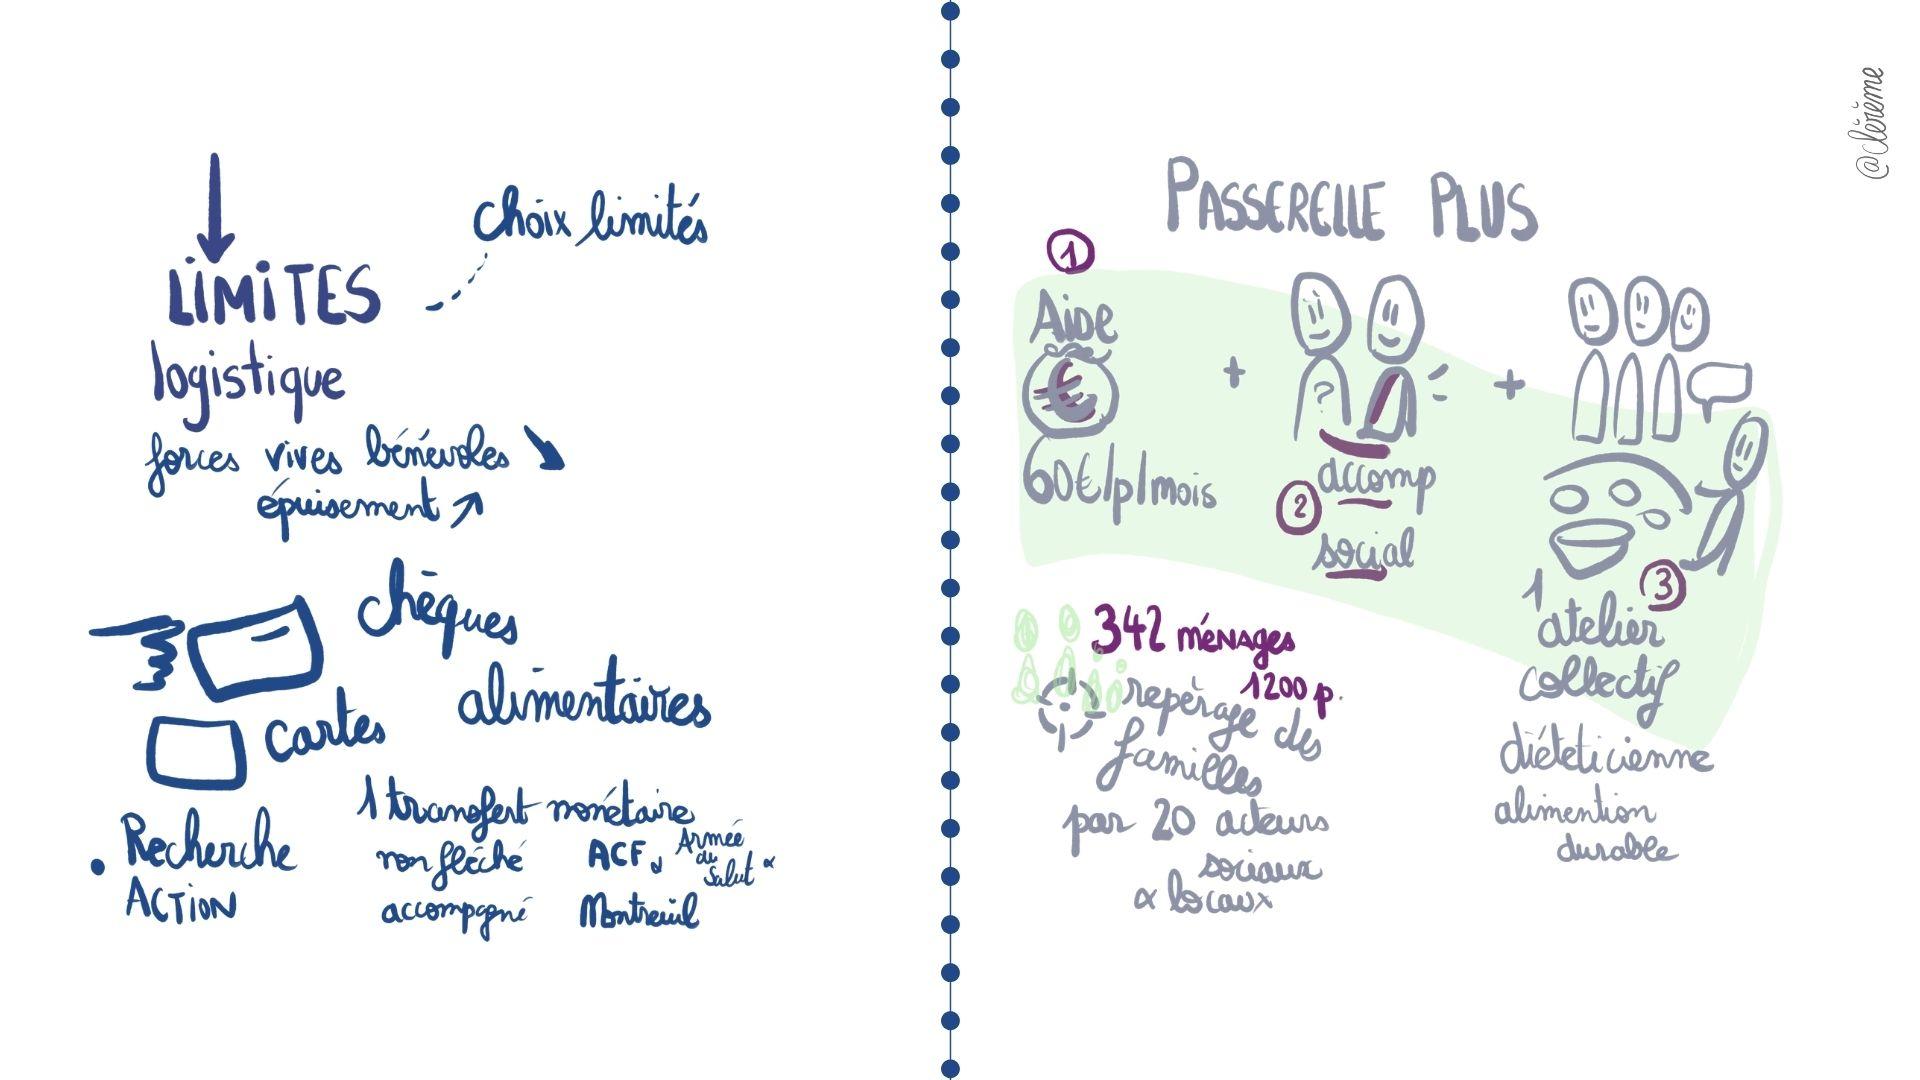 choix limités
LIMITES
logistique
forces vives bénévoles
épuisement
chèques
alimentaires
cartes
Recherche
ACTION
1 transfert monétaire
non fléché
accompagné
ACF &
Armée
du
Salut &
Montreuil
@clérème
PASSERELLE PLUS
1
Aide
€
60€/p/mois
+
?
accomp
2
social
+
3
1
atelier
collectif
diététicienne
alimention
durable
342 ménages
1200 p.
repérage des
familles
par 20 acteurs
sociaux
& locaux